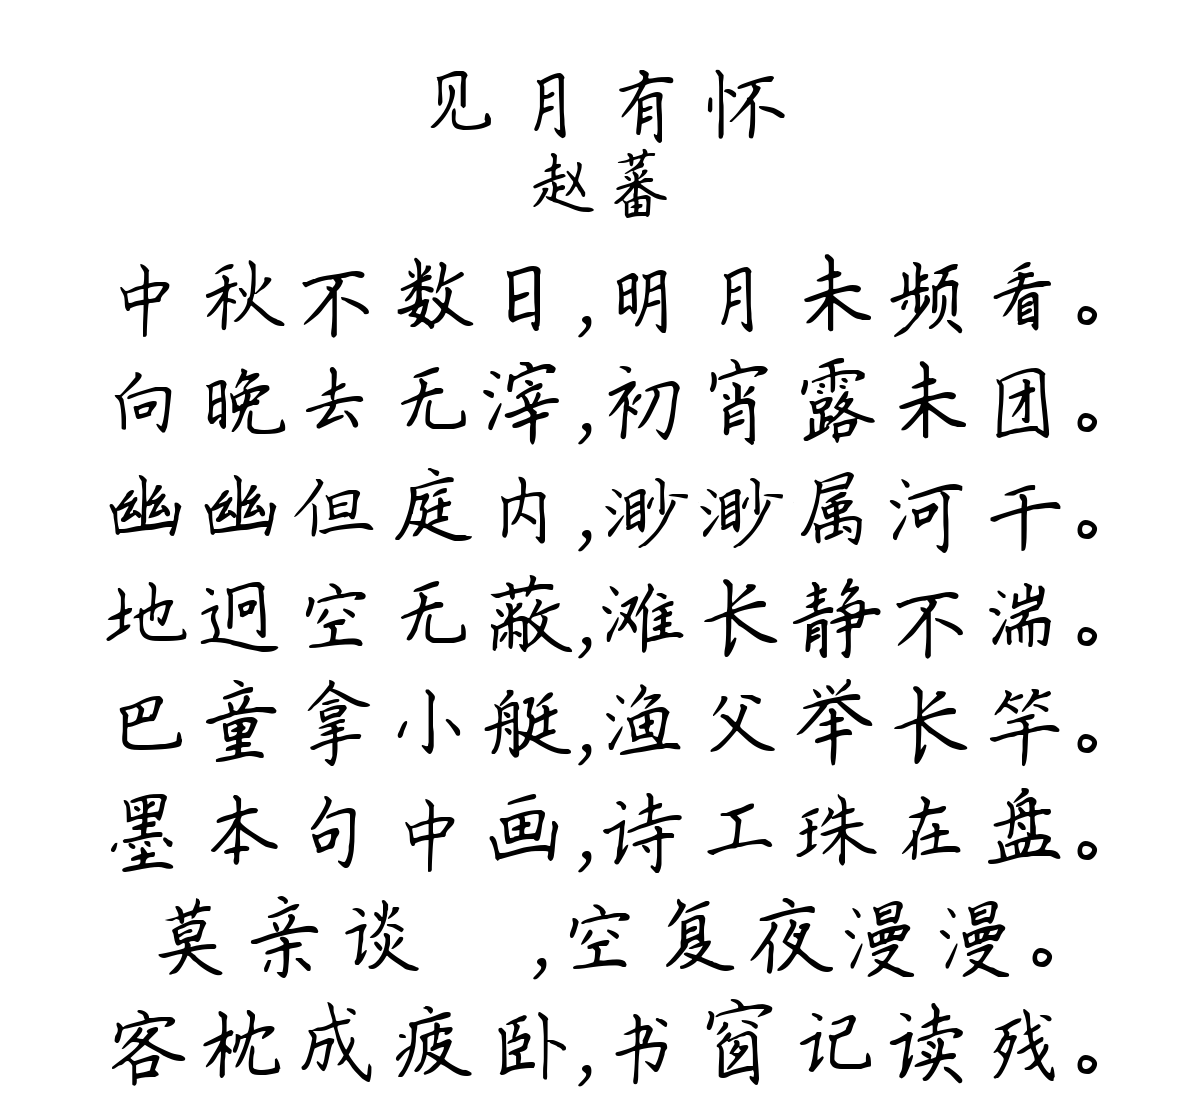 见月有怀
赵蕃
中秋不数日,明月未频看。
向晚去无滓,初宵露未团。
幽幽但庭内,渺渺属河干。
地迥空无蔽,滩长静不湍。
巴童拿小艇,渔父举长竿。
墨本句中画,诗工珠在盘。
莫亲谈 ,空复夜漫漫。
客枕成疲卧,书窗记读残。